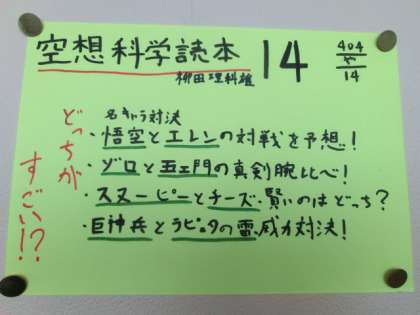 空想科学読本 14
柳田理科雄
404
や
14
どっちが
すごい!?
名キャラ対決
・悟空とエレンの対戦を予想!
・ゾロと五ェ門の真剣腕比べ!
・スヌーピーとチーズ・賢いのはどっち?
・巨神兵とラピュタの雷、威力対決!